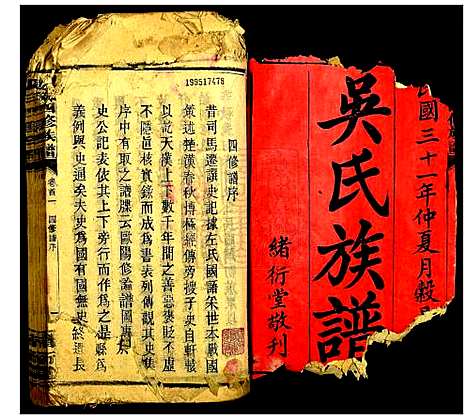 國三十一年仲夏月穀
吳氏族譜
緒衍堂敬刊
199517478
四修譜序
昔司馬遷讓史記據左氏國語采世本戰國
策述楚漢春秋博極經傳旁搜子史自軒轅
以訖天漢上下數十年間之善惡褒貶不虛
不隱迺核實錄而成為書表列傳觀其史惟
序中有取之譜牒云歐陽修譜圖
史公記表依其上下旁行而作為之是縣為
義例與史迥矣夫史為國有國無史終遜長
四修族譜
卷首一
四修譜序